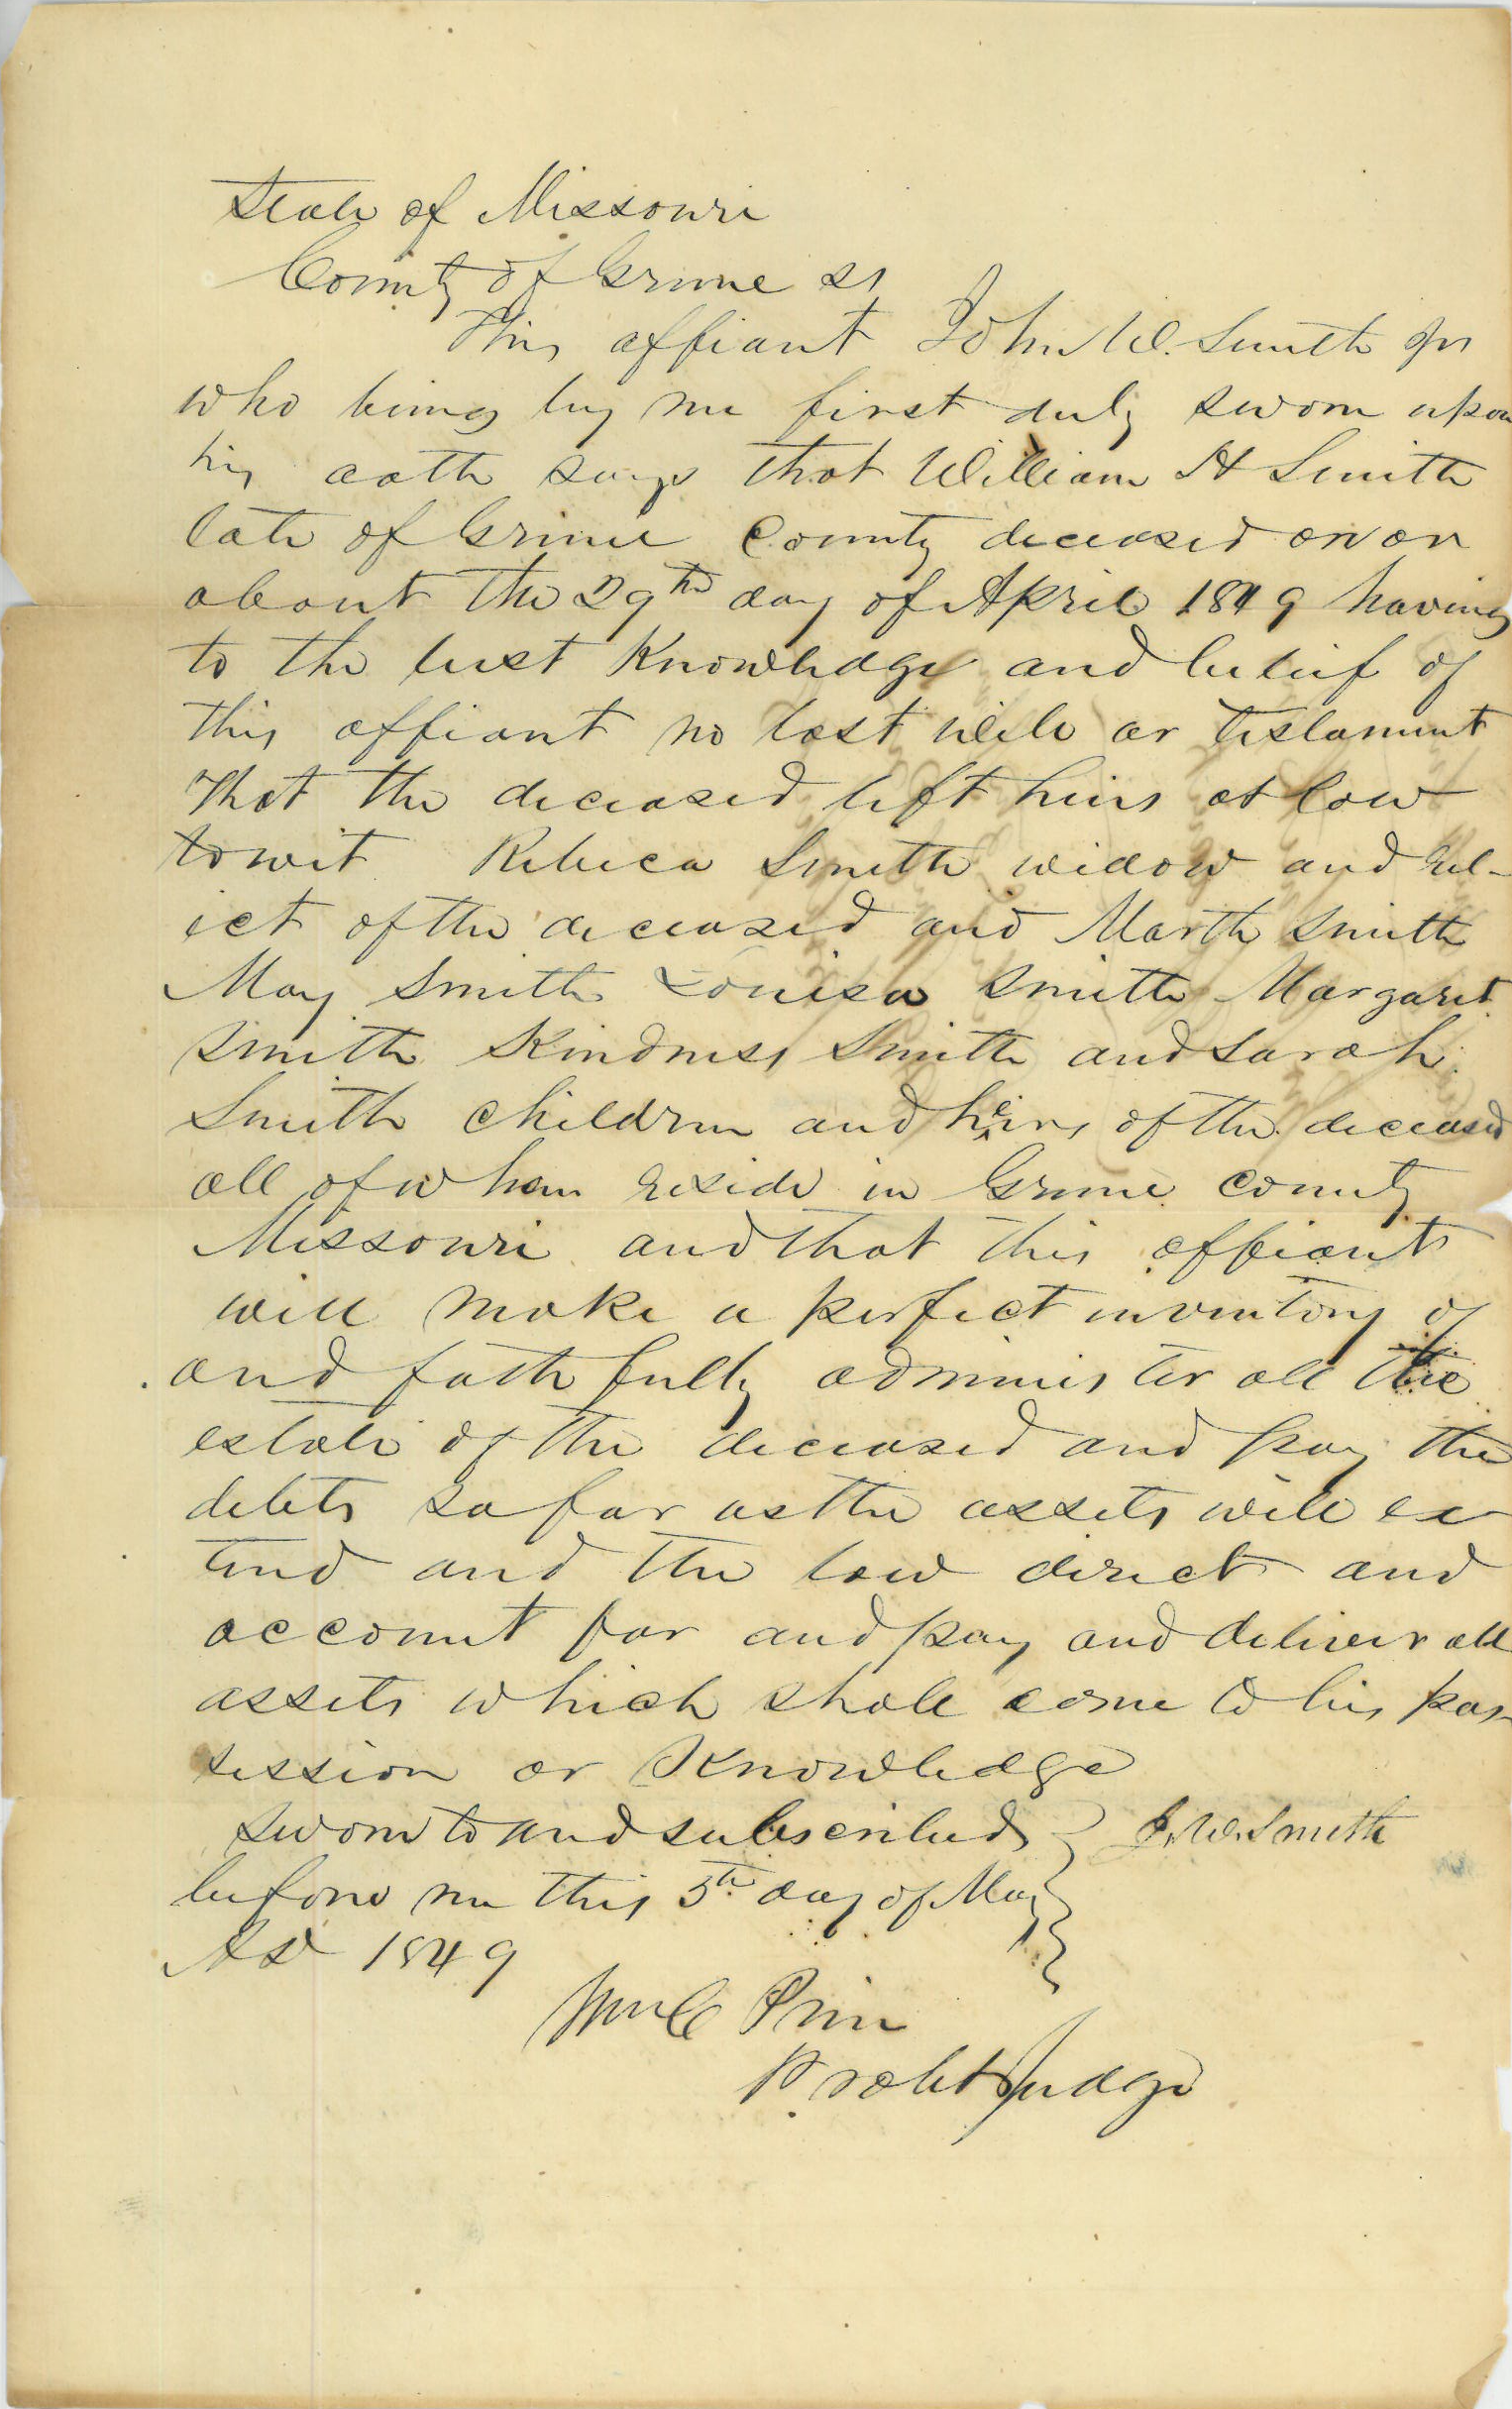 State of Missouri
County of Greene ss
This affiant John W. Smith Jr
who being by me first duly sworn upon
his oath says that William H Smith
late of Greene County deceased on or
about the 29th day of April 1849 having
to the best Knowledge and beleif of
this affiant no last will or testament
That the deceased left heirs at law
to wit Rebeca Smith widow and rel-
ict of the deceased and Marth Smith
May Smith Louisa Smith Margaret
Smith Kindness Smith and Sarah
Smith Children and heirs of the deceased
all of whom reside in Greene County
Missouri and that this affiant
will make a perfect inventory of
and faithfully administer all the
estate of the deceased and pay the
debts so far as the assets will ex
tend and the law direct and
account for and pay and deliver all
assets which shall come to his pos
session or Knowledge
Sworn to and subscribed } J. W. Smith
before me this 5th day of May
AD 1849
Wm C Prim
Probt Judge